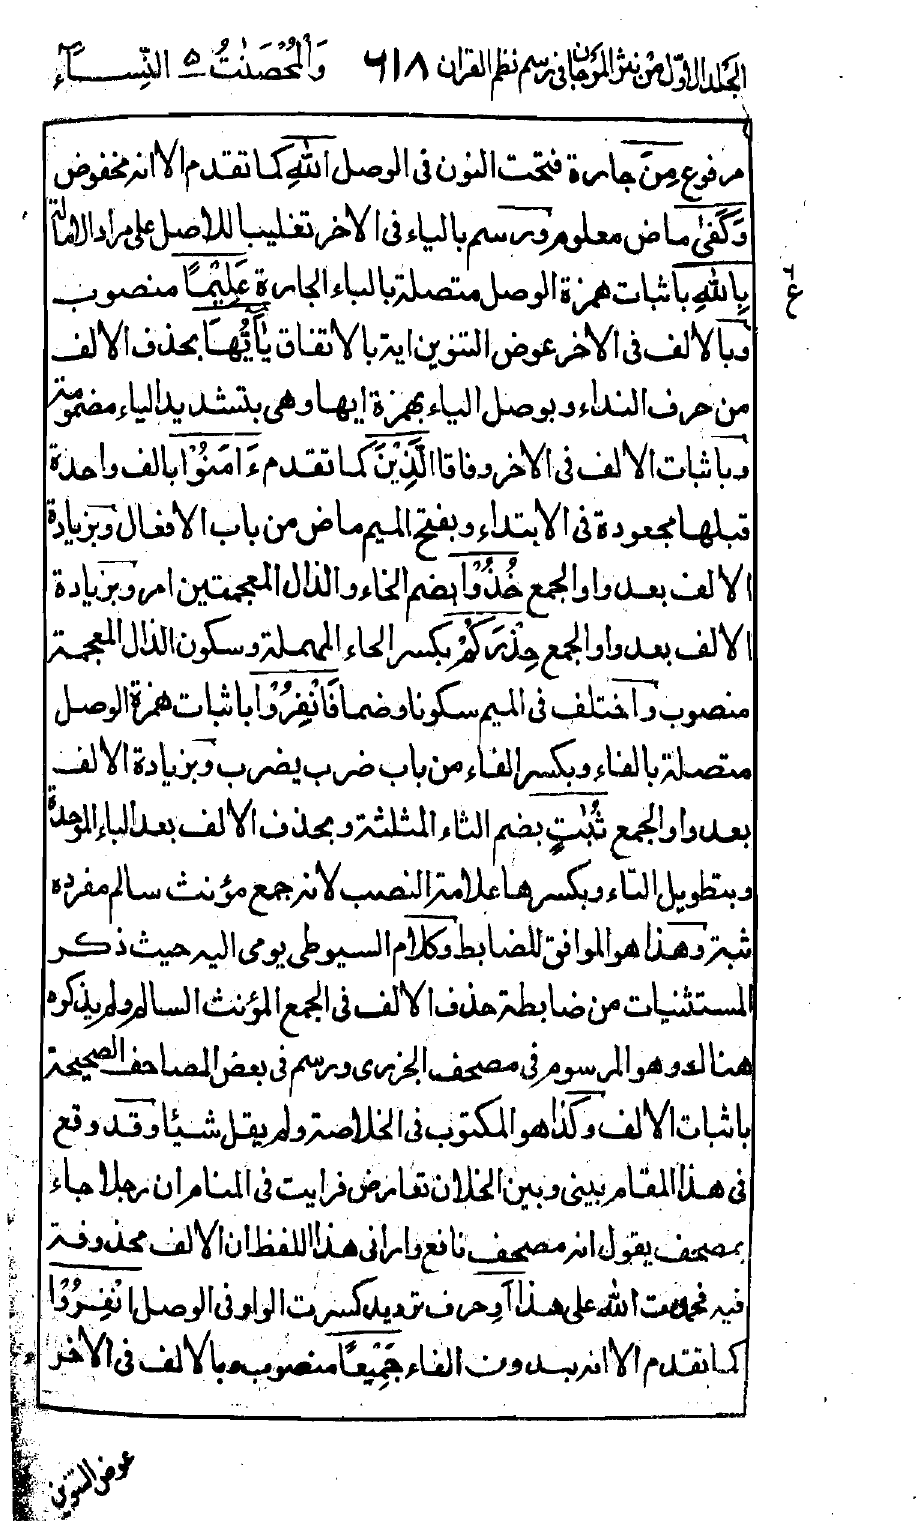 المجلد الاوّل من نثر المرجان فی رسم نظم القران ٦١٨ وَالْمُحْصَنٰتُ ۵ النِّسَاء
مرفوع مِنَ جارة فتحت النون فی الوصل اللّٰهِ کما تقدم الا انه مخفوض
وَكَفٰى ماض معلوم ورسم بالیاء فی الاخر تغلیبا للاصل علی مراد الامالة
بِاللّٰهِ باثبات همزة الوصل متصلة بالباء الجارة عَلِيْمًا منصوب
وبالالف فی الاخر عوض التنوین ایة بالاتفاق يٰٓاَيُّهَا بحذف الالف
من حرف النداء وبوصل الیاء بهمزة ایها وهی بتشدید الیاء مضمومة
وباثبات الالف فی الاخر وفاقا الَّذِيْنَ کما تقدم ءَامَنُوْا بالف واحدة
قبلها مجعودة فی الابتداء وبفتح المیم ماض من باب الافعال وبزیادة
الالف بعد واو الجمع خُذُوْا بضم الخاء والذال المعجمتین امر وبزیادة
الالف بعد واو الجمع حِذْرَكُمْ بکسر الحاء المهملة وسکون الذال المعجمة
منصوب واختلف فی المیم سکونا وضما فَانْفِرُوْا باثبات همزة الوصل
متصلة بالفاء وبکسر الفاء من باب ضرب یضرب وبزیادة الالف
بعد واو الجمع ثُبٰتٍ بضم الثاء المثلثة وبحذف الالف بعد الباء الموحدة
وبتطویل التاء وبکسرها علامة النصب لانه جمع مؤنث سالم مفرده
ثبة وهذا هو الموافق للضابط وکلام السیوطی یومی الیه حیث ذکر
المستثنیات من ضابطة حذف الالف فی الجمع المؤنث السالم ولم یذکره
هنالك وهو المرسوم فی مصحف الجزری ورسم فی بعض المصاحف الصحیحة
باثبات الالف وکذا هو المکتوب فی الخلاصة ولم یقل شیئا وقد وقع
فی هذا المقام بینی وبین الخلان تعارض فرایت فی المنام ان رجلا جاء
بمصحف یقول انه مصحف نافع وارانی هذا اللفظ ان الالف محذوفة
فیه فحمدت الله علی هذا اَوِ حرف تردید کسرت الواو فی الوصل انْفِرُوْا
کما تقدم الا انه بدون الفاء جَمِيْعًا منصوب وبالالف فی الاخر
عوض التنوین